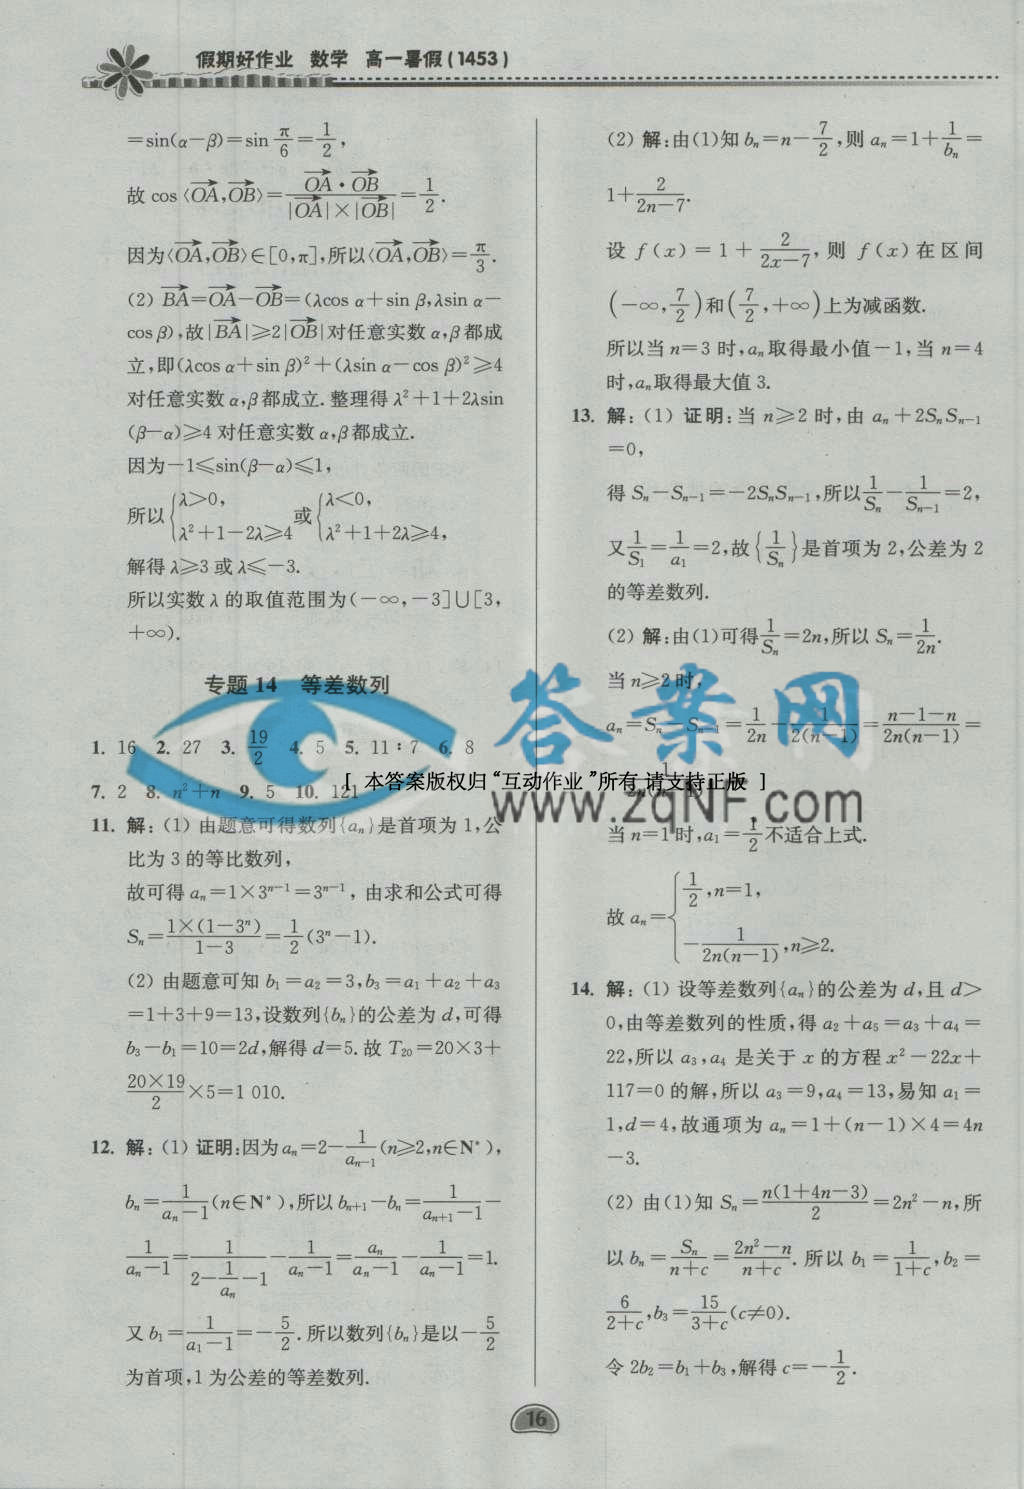 假期好作业 数学 高一暑假(1453)
=sin(α-β)=sin π/6=1/2,
故 cos⟨OA,OB⟩=OA·OB/(|OA|×|OB|)=1/2.
因为⟨OA,OB⟩∈[0,π],所以⟨OA,OB⟩=π/3.
(2) BA=OA-OB=(λcos α+sin β,λsin α-
cos β),故|BA|≥2|OB|对任意实数 α,β都成
立,即(λcos α+sin β)²+(λsin α-cos β)²≥4
对任意实数 α,β都成立.整理得 λ²+1+2λsin
(β-α)≥4 对任意实数 α,β都成立.
因为-1≤sin(β-α)≤1,
所以{λ>0, λ²+1-2λ≥4 或{λ<0, λ²+1+2λ≥4,
解得 λ≥3 或 λ≤-3.
所以实数 λ 的取值范围为(-∞,-3]∪[3,
+∞).
专题 14 等差数列
1. 16 2. 27 3. 19/2 4. 5 5. 11∶7 6. 8
7. 2 8. n²+n 9. 5 10. 121
11. 解:(1) 由题意可得数列{aₙ}是首项为 1,公
比为 3 的等比数列,
故可得 aₙ=1×3ⁿ⁻¹=3ⁿ⁻¹, 由求和公式可得
Sₙ=1×(1-3ⁿ)/(1-3)=1/2(3ⁿ-1).
(2) 由题意可知 b₁=a₂=3,b₃=a₁+a₂+a₃
=1+3+9=13,设数列{bₙ}的公差为 d,可得
b₃-b₁=10=2d,解得 d=5.故 T₂₀=20×3+
20×19/2×5=1 010.
12. 解:(1) 证明:因为 aₙ=2-1/aₙ₋₁(n≥2,n∈N*),
bₙ=1/(aₙ-1)(n∈N*),所以 bₙ₊₁-bₙ=1/(aₙ₊₁-1)-
1/(aₙ-1)=1/(2-1/aₙ-1)-1/(aₙ-1)=aₙ/(aₙ-1)-1/(aₙ-1)=1.
又 b₁=1/(a₁-1)=-5/2.所以数列{bₙ}是以-5/2
为首项,1 为公差的等差数列.
(2) 解:由(1)知 bₙ=n-7/2,则 aₙ=1+1/bₙ=
1+2/(2n-7).
设 f(x)=1+2/(2x-7),则 f(x)在区间
(-∞,7/2)和(7/2,+∞)上为减函数.
所以当 n=3 时,aₙ取得最小值-1,当 n=4
时,aₙ取得最大值 3.
13. 解:(1) 证明:当 n≥2 时,由 aₙ+2SₙSₙ₋₁
=0,
得 Sₙ-Sₙ₋₁=-2SₙSₙ₋₁,所以1/Sₙ-1/Sₙ₋₁=2,
又1/S₁=1/a₁=2,故{1/Sₙ}是首项为 2,公差为 2
的等差数列.
(2) 解:由(1)可得1/Sₙ=2n,所以 Sₙ=1/2n.
当 n≥2 时,
aₙ=Sₙ-Sₙ₋₁=1/2n-1/2(n-1)=(n-1-n)/2n(n-1)=
-1/2n(n-1).
当 n=1 时,a₁=1/2不适合上式.
故 aₙ={1/2,n=1, -1/2n(n-1),n≥2.
14. 解:(1) 设等差数列{aₙ}的公差为 d,且 d>
0,由等差数列的性质,得 a₂+a₅=a₃+a₄=
22,所以 a₃,a₄ 是关于 x 的方程 x²-22x+
117=0 的解,所以 a₃=9,a₄=13,易知 a₁=
1,d=4,故通项为 aₙ=1+(n-1)×4=4n
-3.
(2) 由(1)知 Sₙ=n(1+4n-3)/2=2n²-n,所
以 bₙ=Sₙ/(n+c)=(2n²-n)/(n+c).所以 b₁=1/(1+c),b₂=
6/(2+c),b₃=15/(3+c)(c≠0).
令 2b₂=b₁+b₃,解得 c=-1/2.
答案网
[ 本答案版权归“互动作业”所有 请支持正版 ]
www.zqNF.com
16